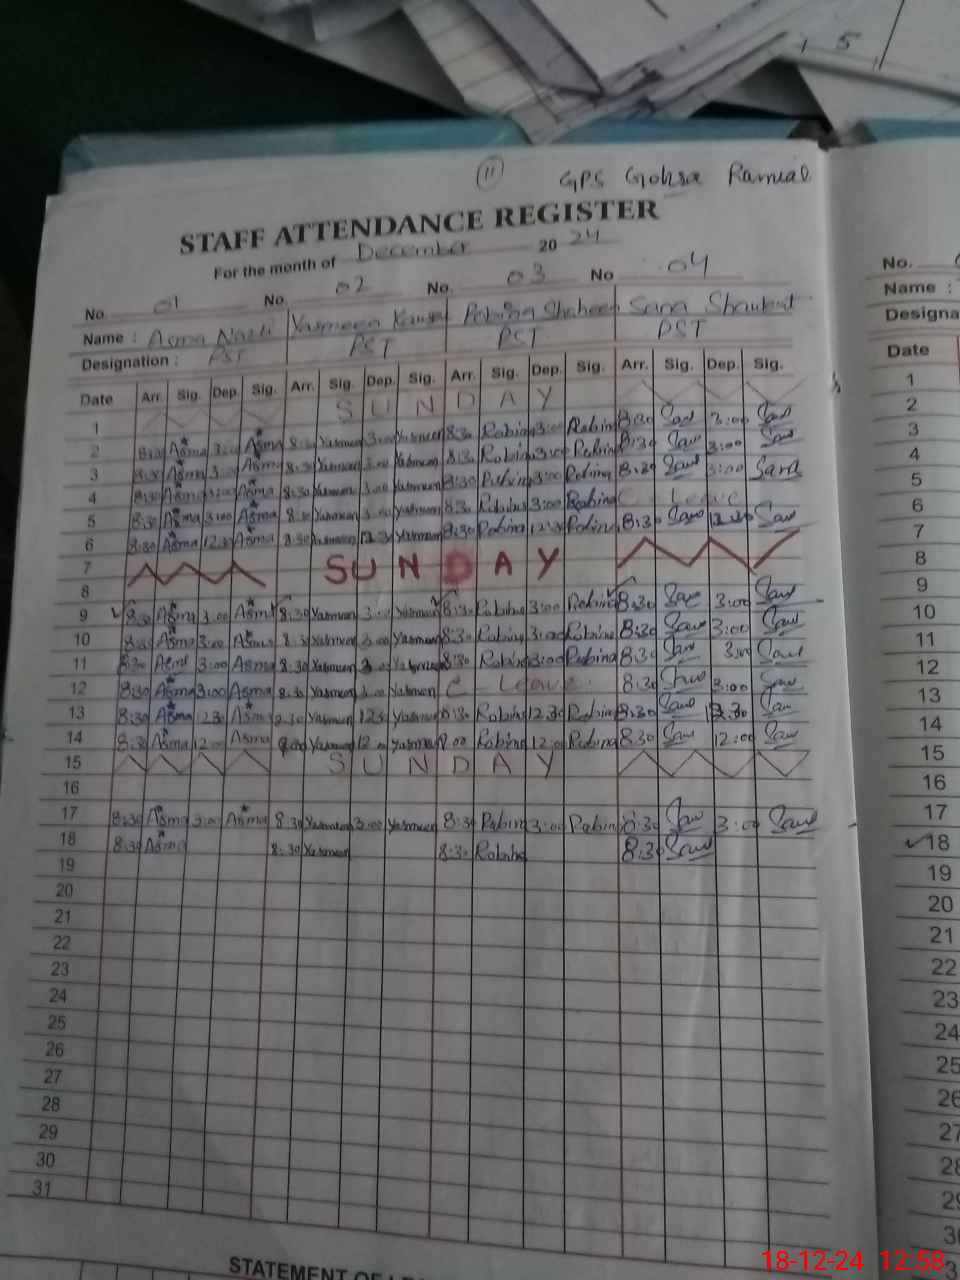 5
11 GPS Gohra Ramial
STAFF ATTENDANCE REGISTER
For the month of December 2024
No. 01 No. 02 No. 03 No 04 No.
Name : Asma Yasmeen Kausar Robina Shaheen Sara Shaukat Name :
Designation : PST PST PST PST Designa
Date Arr. Sig. Dep. Sig. Arr. Sig. Dep. Sig. Arr. Sig. Dep. Sig. Arr. Sig. Dep. Sig. Date
1 SUNDAY 1
2 8:30 Asma 3:00 Asma 8:30 Yasmeen 3:00 Yasmeen 8:30 Robina 3:00 Robina 8:30 3:00 2
3 8:30 Asma 3:00 Asma 8:30 Yasmeen 3:00 Yasmeen 8:30 Robina 3:00 Robina 8:30 3:00 3
4 8:30 Asma 3:00 Asma 8:30 Yasmeen 3:00 Yasmeen 8:30 Robina 3:00 Robina 8:30 3:00 Sara 4
5 8:30 Asma 3:00 Asma 8:30 Yasmeen 3:00 Yasmeen 8:30 Robina 3:00 Robina C Leave 5
6 8:30 Asma 12:30 Asma 8:30 Yasmeen 12:30 Yasmeen 8:30 Robina 12:30 Robina 8:30 12:30 6
7 SUNDAY 7
8 8
9 8:30 Asma 3:00 Asma 8:30 Yasmeen 3:00 Yasmeen 8:30 Robina 3:00 Robina 8:30 3:00 9
10 8:30 Asma 3:00 Asma 8:30 Yasmeen 3:00 Yasmeen 8:30 Robina 3:00 Robina 8:30 3:00 10
11 8:30 Asma 3:00 Asma 8:30 Yasmeen 3:00 Yasmeen 8:30 Robina 3:00 Robina 8:30 3:00 11
12 8:30 Asma 3:00 Asma 8:30 Yasmeen 3:00 Yasmeen C Leave 8:30 3:00 12
13 8:30 Asma 12:30 Asma 8:30 Yasmeen 12:30 Yasmeen 8:30 Robina 12:30 Robina 8:30 12:30 13
14 8:30 Asma 12:00 Asma 9:00 Yasmeen 12:00 Yasmeen 9:00 Robina 12:00 Robina 8:30 12:00 14
15 SUNDAY 15
16 16
17 8:30 Asma 3:00 Asma 8:30 Yasmeen 3:00 Yasmeen 8:30 Robina 3:00 Robina 8:30 3:00 17
18 8:30 Asma 8:30 Yasmeen 8:30 Robina 8:30 18
19 19
20 20
21 21
22 22
23 23
24 24
25 25
26 26
27 27
28 28
29 29
30
31
STATEMENT OF
18-12-24 12:58